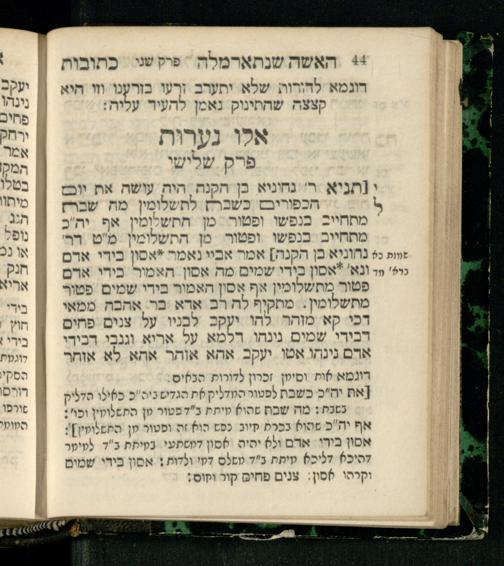 44 האשה שנתארמלה פרק שני כתובות
דוגמא להורות שלא יתערב זרעו בזרענו וזו היא
קצצה שהתינוק נאמן להעיד עליה:
אלו נערות
פרק שלישי
[תניא ר׳ נחוניא בן הקנה היה עושה את יום
הכפורים כשבת לתשלומין מה שבת
מתחייב בנפשו ופטור מן התשלומין אף יה״כ
מתחייב בנפשו ופטור מן התשלומין מ״ט דר׳
נחוניא בן הקנה] אמר אביי נאמר *אסון בידי אדם
ונא׳ *אסון בידי שמים מה אסון האמור בידי אדם
פטור מתשלומין אף אסון האמור בידי שמים פטור
מתשלומין. מתקיף לה רב אדא בר אהבה ממאי
דכי קא מזהר להו יעקב לבניו על צנים פחים
דבידי שמים נינהו דלמא על אריא וגנבי דבידי
אדם נינהו אטו יעקב אהא אזהר אהא לא אזהר
דוגמא אות וסימן זכרון לדורות הבאים:
[את יה״כ כשבת לפטור המדליק את הגדיש ביה״כ כאילו הדליק
בשבת: מה שבת שהוא מיתת ב״ד פטור מן התשלומין וכו׳:
אף יה״כ שהוא בכרת חיוב נפש הוא זה ופטור מן התשלומין]:
אסון בידי אדם ולא יהיה אסון דמשתעי במיתת ב״ד למימר
דהיכא דליכא מיתת ב״ד משלם דמי ולדות: אסון בידי שמים
וקרהו אסון: צנים פחים קור וקוס:
שמות כא
ברא׳ מד